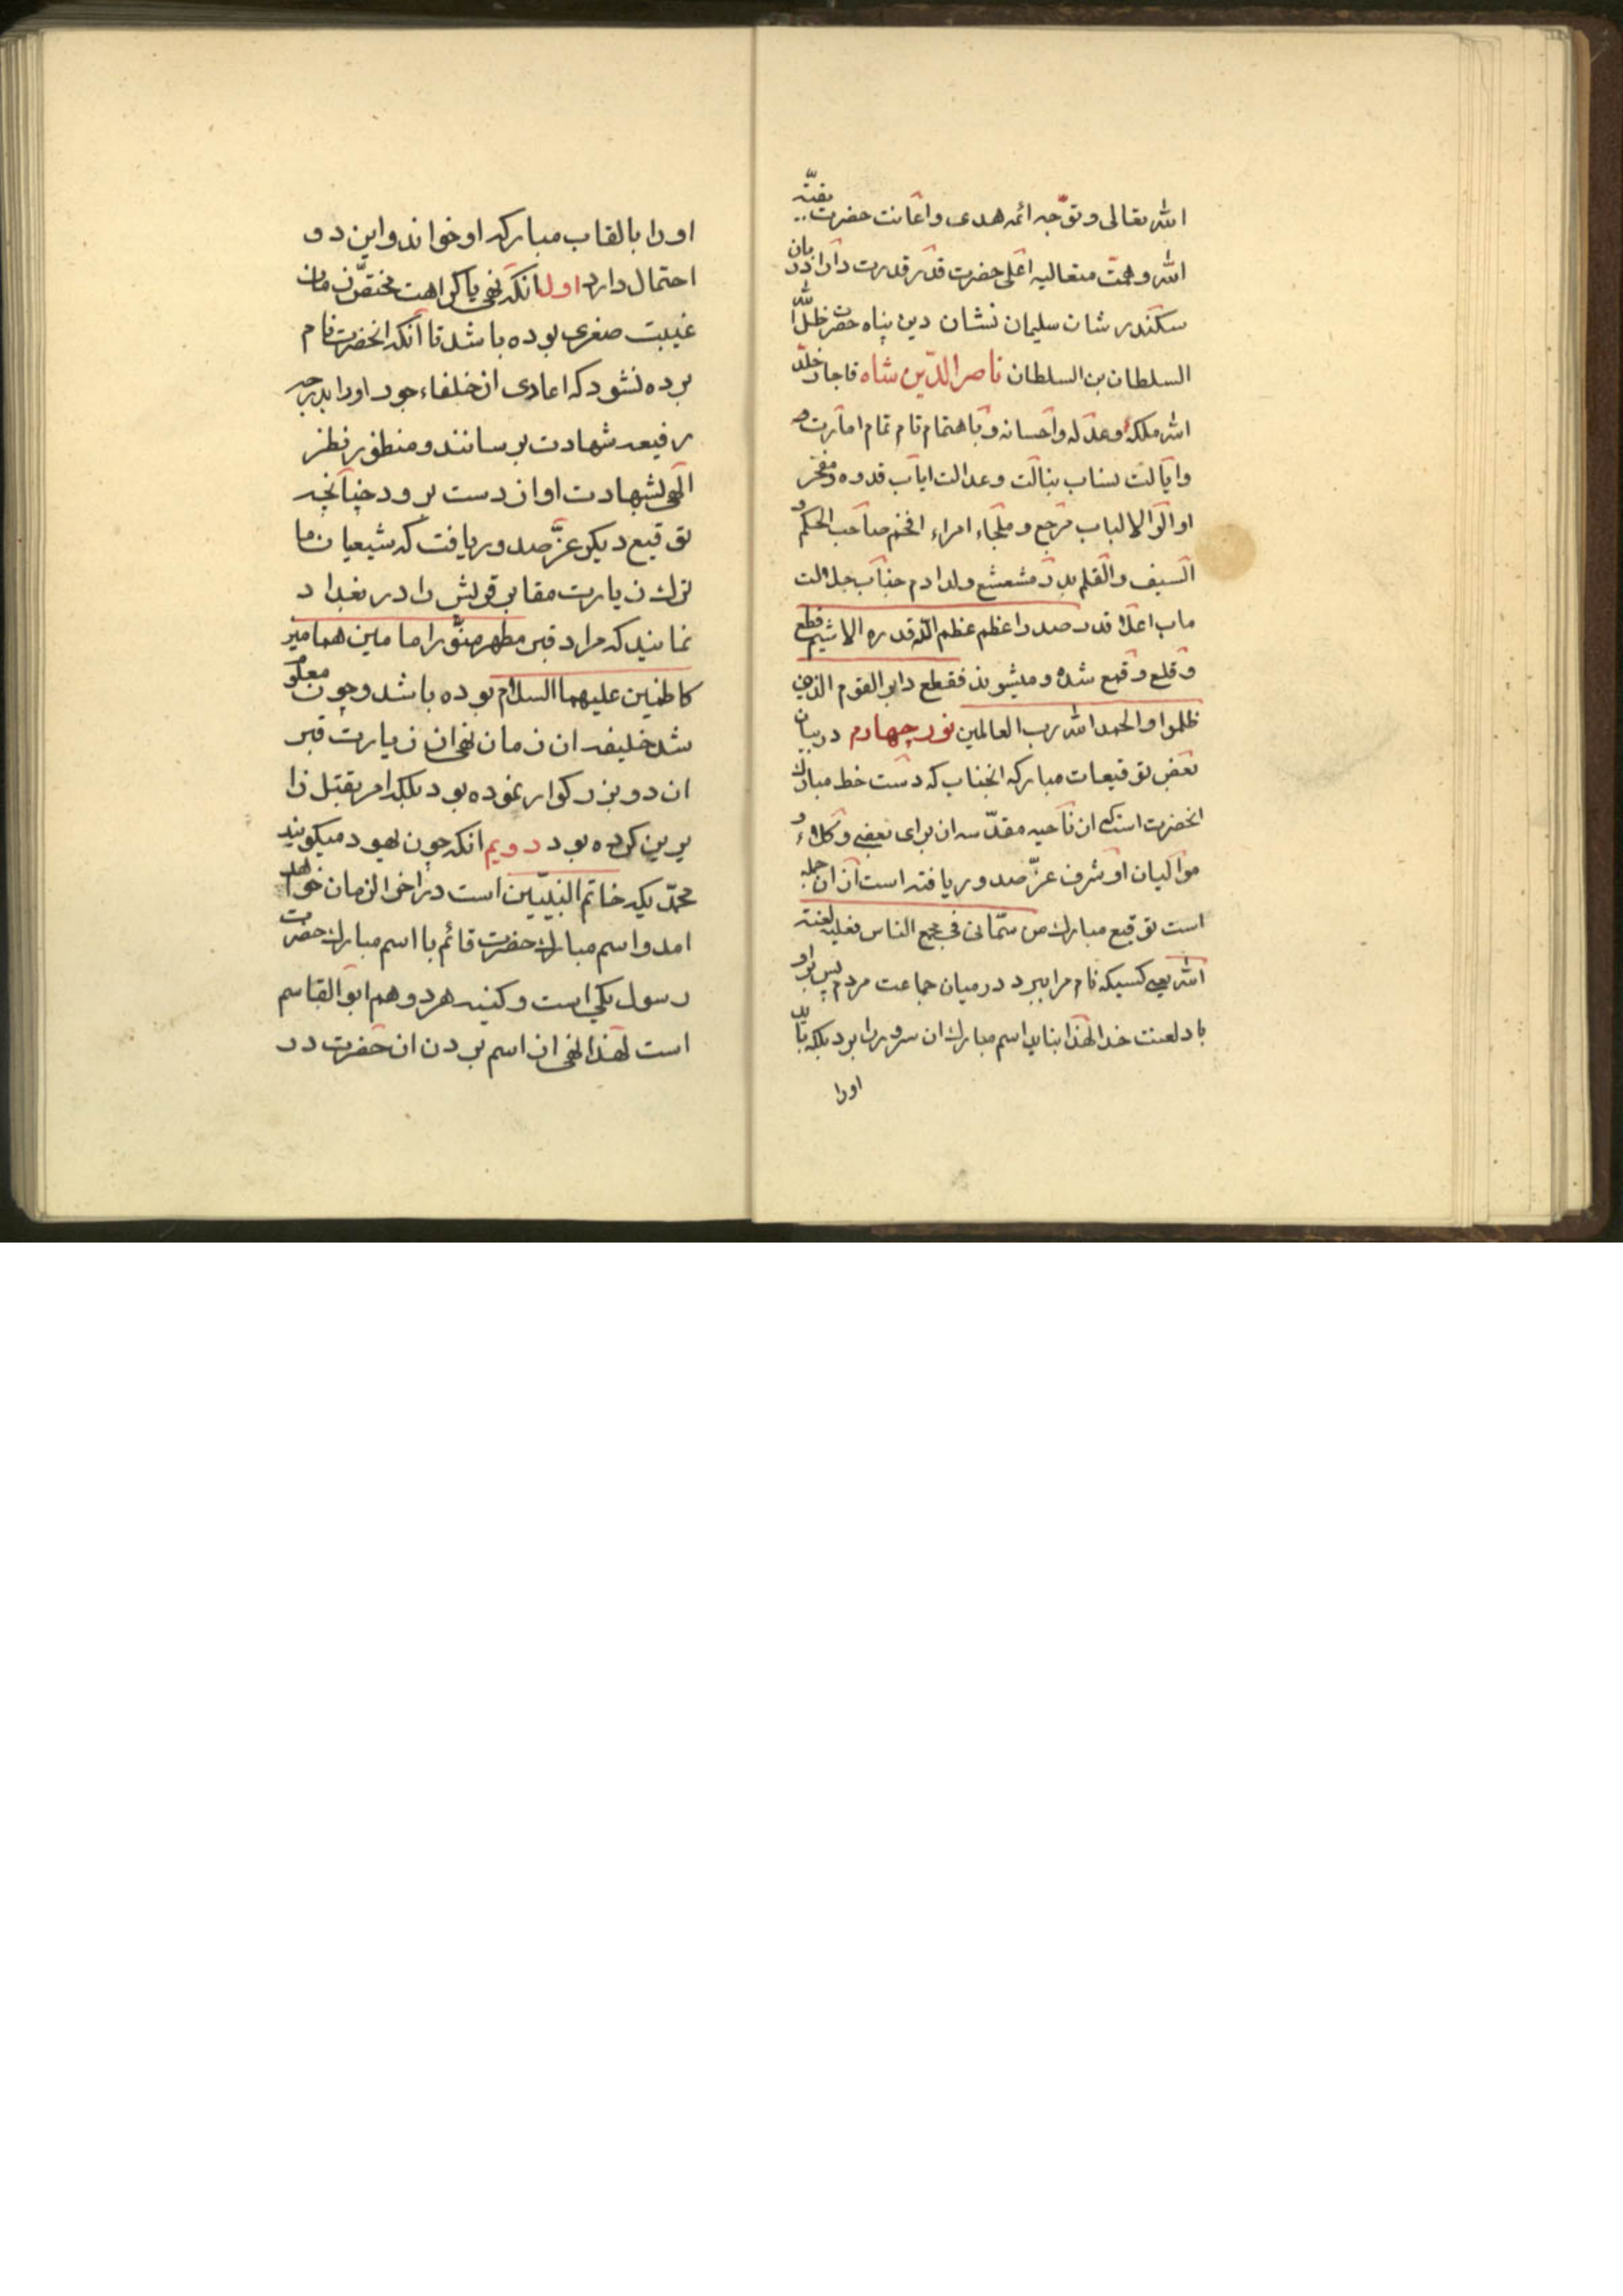 الله تعالی و توجه ائمه هدی و اعانت حضرت بقیّة
الله و همّت متعالیه اعلی حضرت قدر قدرت دارا دربان
سکندر شان سلیمان نشان دین پناه حضرت ظل الله
السلطان بن السلطان ناصر الدّین شاه قاجار خلّد
الله ملکه و عدله و احسانه و باهتمام تام تمام امارت
و ایالت نساب بنالت و عدالت ایاب قدوه و مفخر
اولوا الالباب مرجع و ملجاء امراء افخم صاحب الحکم و
السیف والقلم بدر مشعشع ولدادم جناب جلالت
ماب اعلا قدر صدر اعظم عظم الله قدره الاثیم قطع
و قلع و قمع شده و میشوند فقطع دابر القوم الذین
ظلموا والحمد الله رب العالمین نور چهارم در بیان
بعض توقیعات مبارکه انجناب که دست خط مبارک
انحضرت است که از ناحیه مقدّسه ان برای بعضی وکلاء و
موالیان او شرف عزّ صدور یافته است از ان جمله
است توقیع مبارک من سمّانی فی مجمع الناس فعلیه لعنة
الله یعنی کسیکه نام مرا ببرد در میان جماعت مردم پس بر او
باد لعنت خدا لهذا نباید اسم مبارک ان سرور را برد بلکه باید
اورا
اورا بالقاب مبارکه او خواند و این دو
احتمال دارد اول انکه نهی یا کراهت مختصّ زمان
غیبت صغری بوده باشد تا آنکه انحضرت نام
برده نشود که اعادی از خلفاء جور اورا بدرجه
رفیعه شهادت برسانند و منظور نظر
الهی بشهادت او از دست برود چنانچه
توقیع دیگر عزّ صدور یافت که شیعیان ما
ترک زیارت مقابر قریش را در بغداد
نمایند که مراد قبر مطهر منوّر امامین همامین
کاظمین علیهما السلام بوده باشد و چون معلوم
شد خلیفه ان زمان نهی از زیارت قبر
ان دو بزرکوار نموده بود بلکه امر بقتل زا
یرین کرده بود دویم انکه چون یهود میکویند
محمّدیکه خاتم النبیّین است در اخر الزمان خواهد
امد و اسم مبارک حضرت قائم با اسم مبارک حضرت
رسول یکی است و کنیه هردو هم ابوالقاسم
است لهذا نهی از اسم بردن ان حضرت در